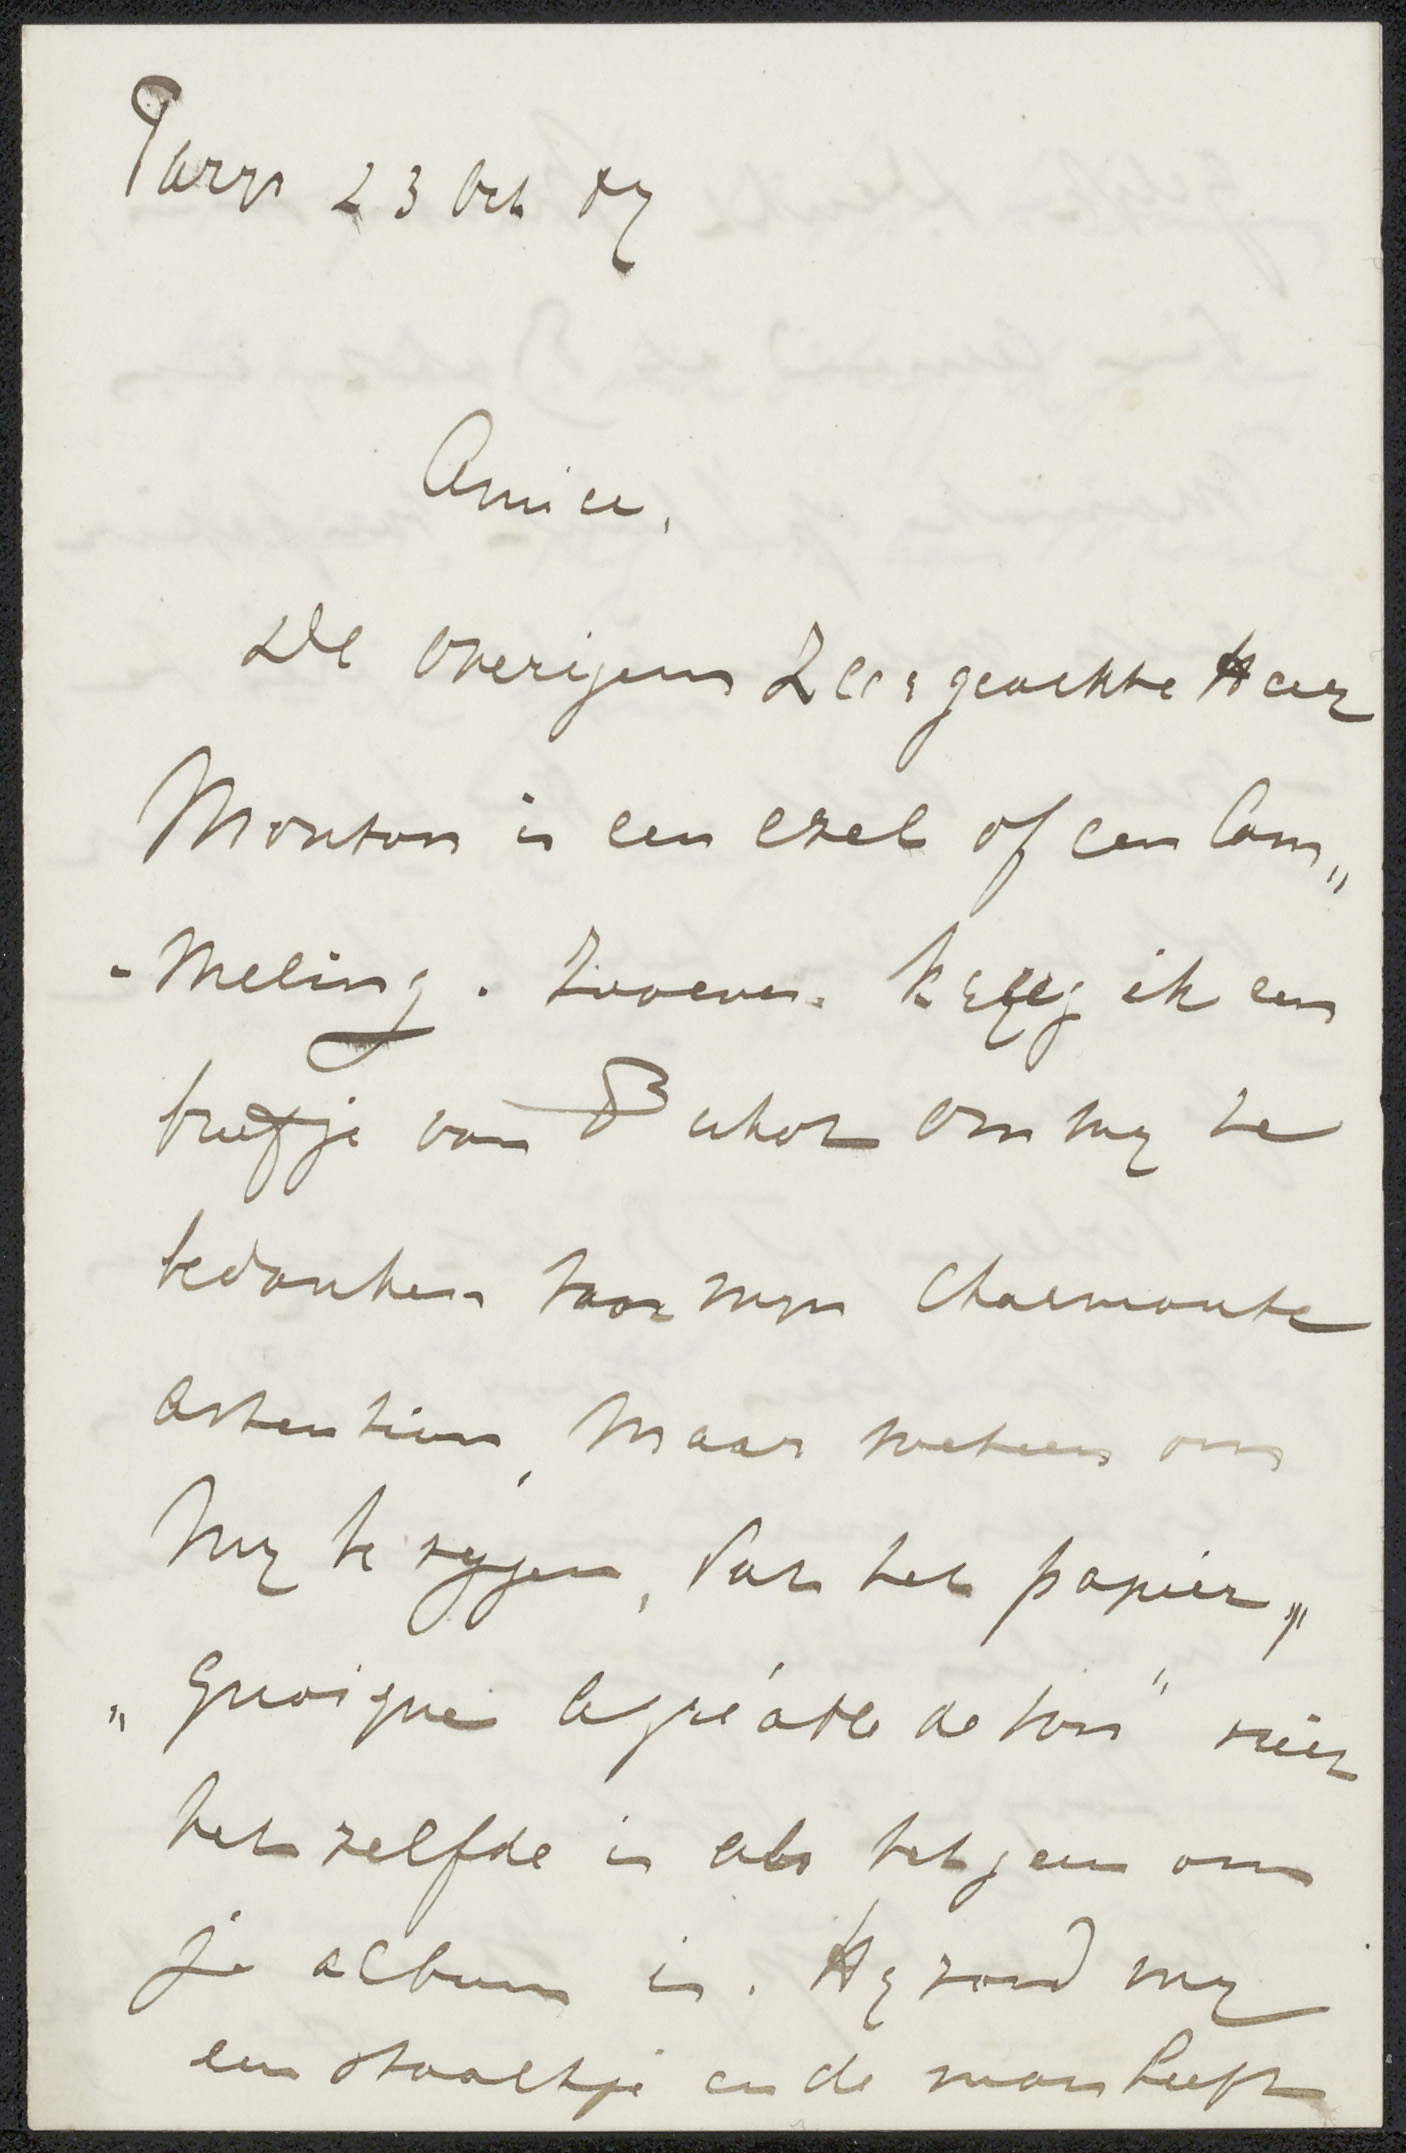 Parys 23 Oct 87
Amice,
De overigens Zeer geachte Heer
Mouton is een ezel of een Lom„
- meling. Zooeven kreeg ik een
briefje van Buhot om my te
bedanken voor myn charmante
attention, maar meteen om
my te zeggen, dat het papier„
„quoique agréable de ton" niet
het zelfde is als hetgeen om
je album is. Hy zond my
een staaltje en de man heeft